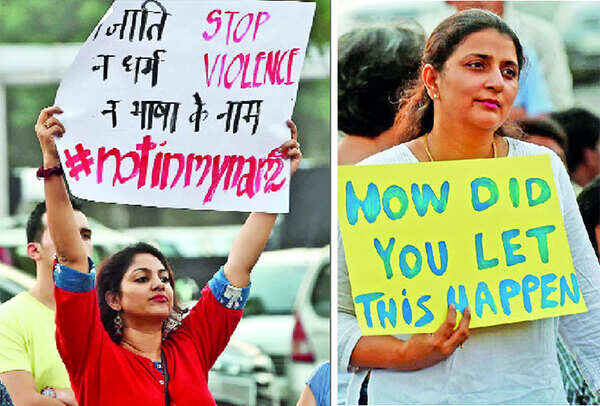 जाति STOP
न धर्म VIOLENCE
न भाषा के नाम
#notinmyname
HOW DID
YOU LET
THIS HAPPEN